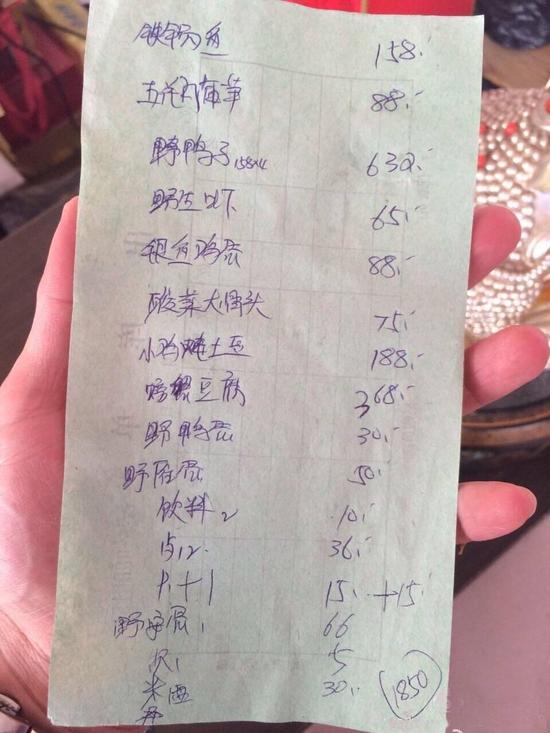 铁锅鱼 158.-
五花肉蒲笋 88.-
野鸭子 158x4 632.-
野生 65.-
银鱼鸡蛋 88.-
酸菜大骨头 75.-
小鸡炖土豆 188.-
螃蟹豆腐 368.-
野鸭蛋 30.-
野 蛋 50.-
饮料2 10.-
12. 36.-
+1 15. +15.-
野 蛋1 66
1 5
米酒 30.- 1850